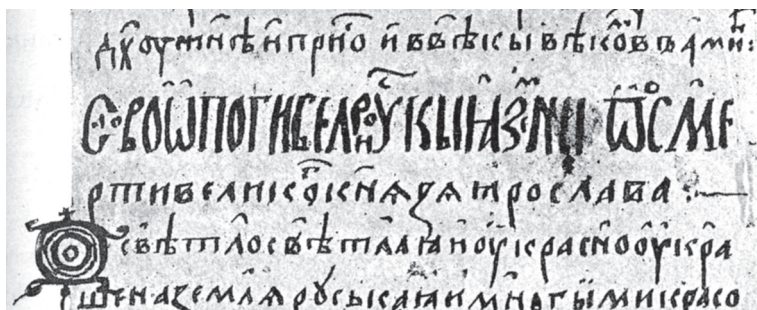 дх҃оу и нн҃ѣ и прн҃о и в вѣкы вѣкѡвъ амин:
Слово ѡ погибели рꙋкыꙗ земли ѿ сме
рти великⷪ҇ кнѧзѧ ꙗрослава :
О свѣтло свѣтлаꙗ и оукрасно оукра
шена землѧ русьскаꙗ и многыими красо